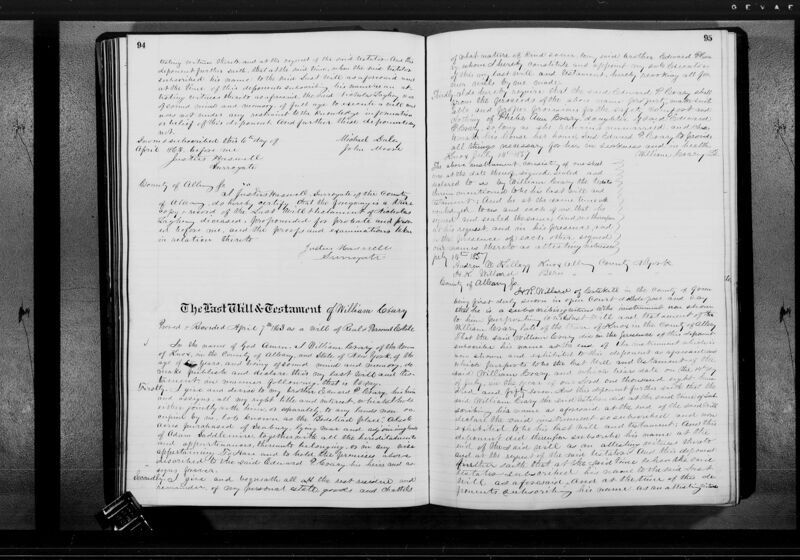 94
testing witness thereto and at the request of the said testator. And this
deponent further saith, that at the said time, when the said testator
subscribed his name to the said last will as aforesaid and
at the time of this deponents subscribing his name as an at-
testing witness thereto as aforesaid, the said Nicholas Saylsing was
of sound mind and memory, of full age to execute a will and
was not under any restraint to the knowledge information
or belief of this deponent. And further these deponents say
not.
Sworn & subscribed this 6th day of
April 1868 before me
Justus Haswell
Surrogate
Michael
John Moore
County of Albany ss.
I Justus Haswell Surrogate of the County
of Albany, do hereby certify that the foregoing is a true
copy & record of the Last Will & Testament of Nicholas
deceased, propounded for probate and prov-
en before me, and the proofs and examinations taken
in relation thereto
Justus Haswell
Surrogate
The Last Will & Testament of William Crary
Proved & Recorded April 7th 1868 as a Will of Real & Personal Estate
In the name of God Amen. I William Crary of the town
of Knox, in the County of Albany, and State of New York, of the
age of years and being of sound mind and memory, do
make publish and declare this my last will and tes-
tament in manner following, that is to say.
Firstly. I give and devise to my brother Edward P. Crary, his heirs
and assigns, all my right title and interest, whether held
either jointly with him, or separately to any lands now
occupied by us both known as the place, also
acres purchased of being near and adjoining lands
of Adam together with all the hereditaments
and appurtenances thereunto belonging or in any wise
appertaining To Have and to hold the premises above
described to the said Edward P. Crary his heirs and as-
signs forever.
Secondly. I give and bequeath all the rest residue and
remainder of my personal estate, goods and chattels
95
of what nature or kind soever, to my said brother Edward P. Crary
whom I hereby constitute and appoint my sole Executor
of this my last will and testament, hereby revoking all for-
mer wills by me made.
Thirdly. I do hereby require that the said Edward P. Crary shall
from the proceeds of the above named property make suit-
able and proper provisions for the safe support and
clothing of Phebe Ann Crary, daughter of said Edward
P. Crary so long as she remains unmarried, and
want to his house her home, said Edward P. Crary to provide
all things necessary for her in sickness and in health
Knox July 18th 1857
William Crary L.S.
The above instrument consisting of one sheet
was at the date thereof signed sealed and
declared to us by William Crary the testa-
tor mentioned to be his last will and
testament. And he at the same time ack-
nowledged to us and each of us that he
signed and sealed the same, and we thereupon
at his request and in his presence, and
in the presence of each other signed
our names thereto as attesting witnesses
July 18th 1857
Andrew W. Kellogg Knox Albany County N. York
H. K. Willard Bern " "
County of Albany ss.
H. K. Willard of Catskill in the County of Greene
being first duly sworn in open Court doth depose and say
that he is a subscribing witness to the instrument now shown
to him purporting to be the last will and testament of
William Crary late of the Town of Knox in the County of Albany
That the said William Crary did in the presence of this deponent
subscribe his name at the end of the instrument which is
now shown and exhibited to this deponent as aforesaid and
which purports to be the last will and testament of the
said William Crary and which bears date on the 18th day
of July in the year of our Lord one thousand eight hun-
dred and fifty seven. And this deponent further saith that the
said William Crary the said testator did at the same time of sub-
scribing his name as aforesaid at the end of the said will
declare the said instrument so subscribed and now
exhibited to be his last will and testament: And this
deponent did thereupon subscribe his name at the
end of the said will as an attesting witness thereto
and at the request of the said testator. And this deponent
further saith that at the said time, when the said
testator subscribed his name to the said last
will as aforesaid, and at the time of this de-
ponents subscribing his name as an attesting witness